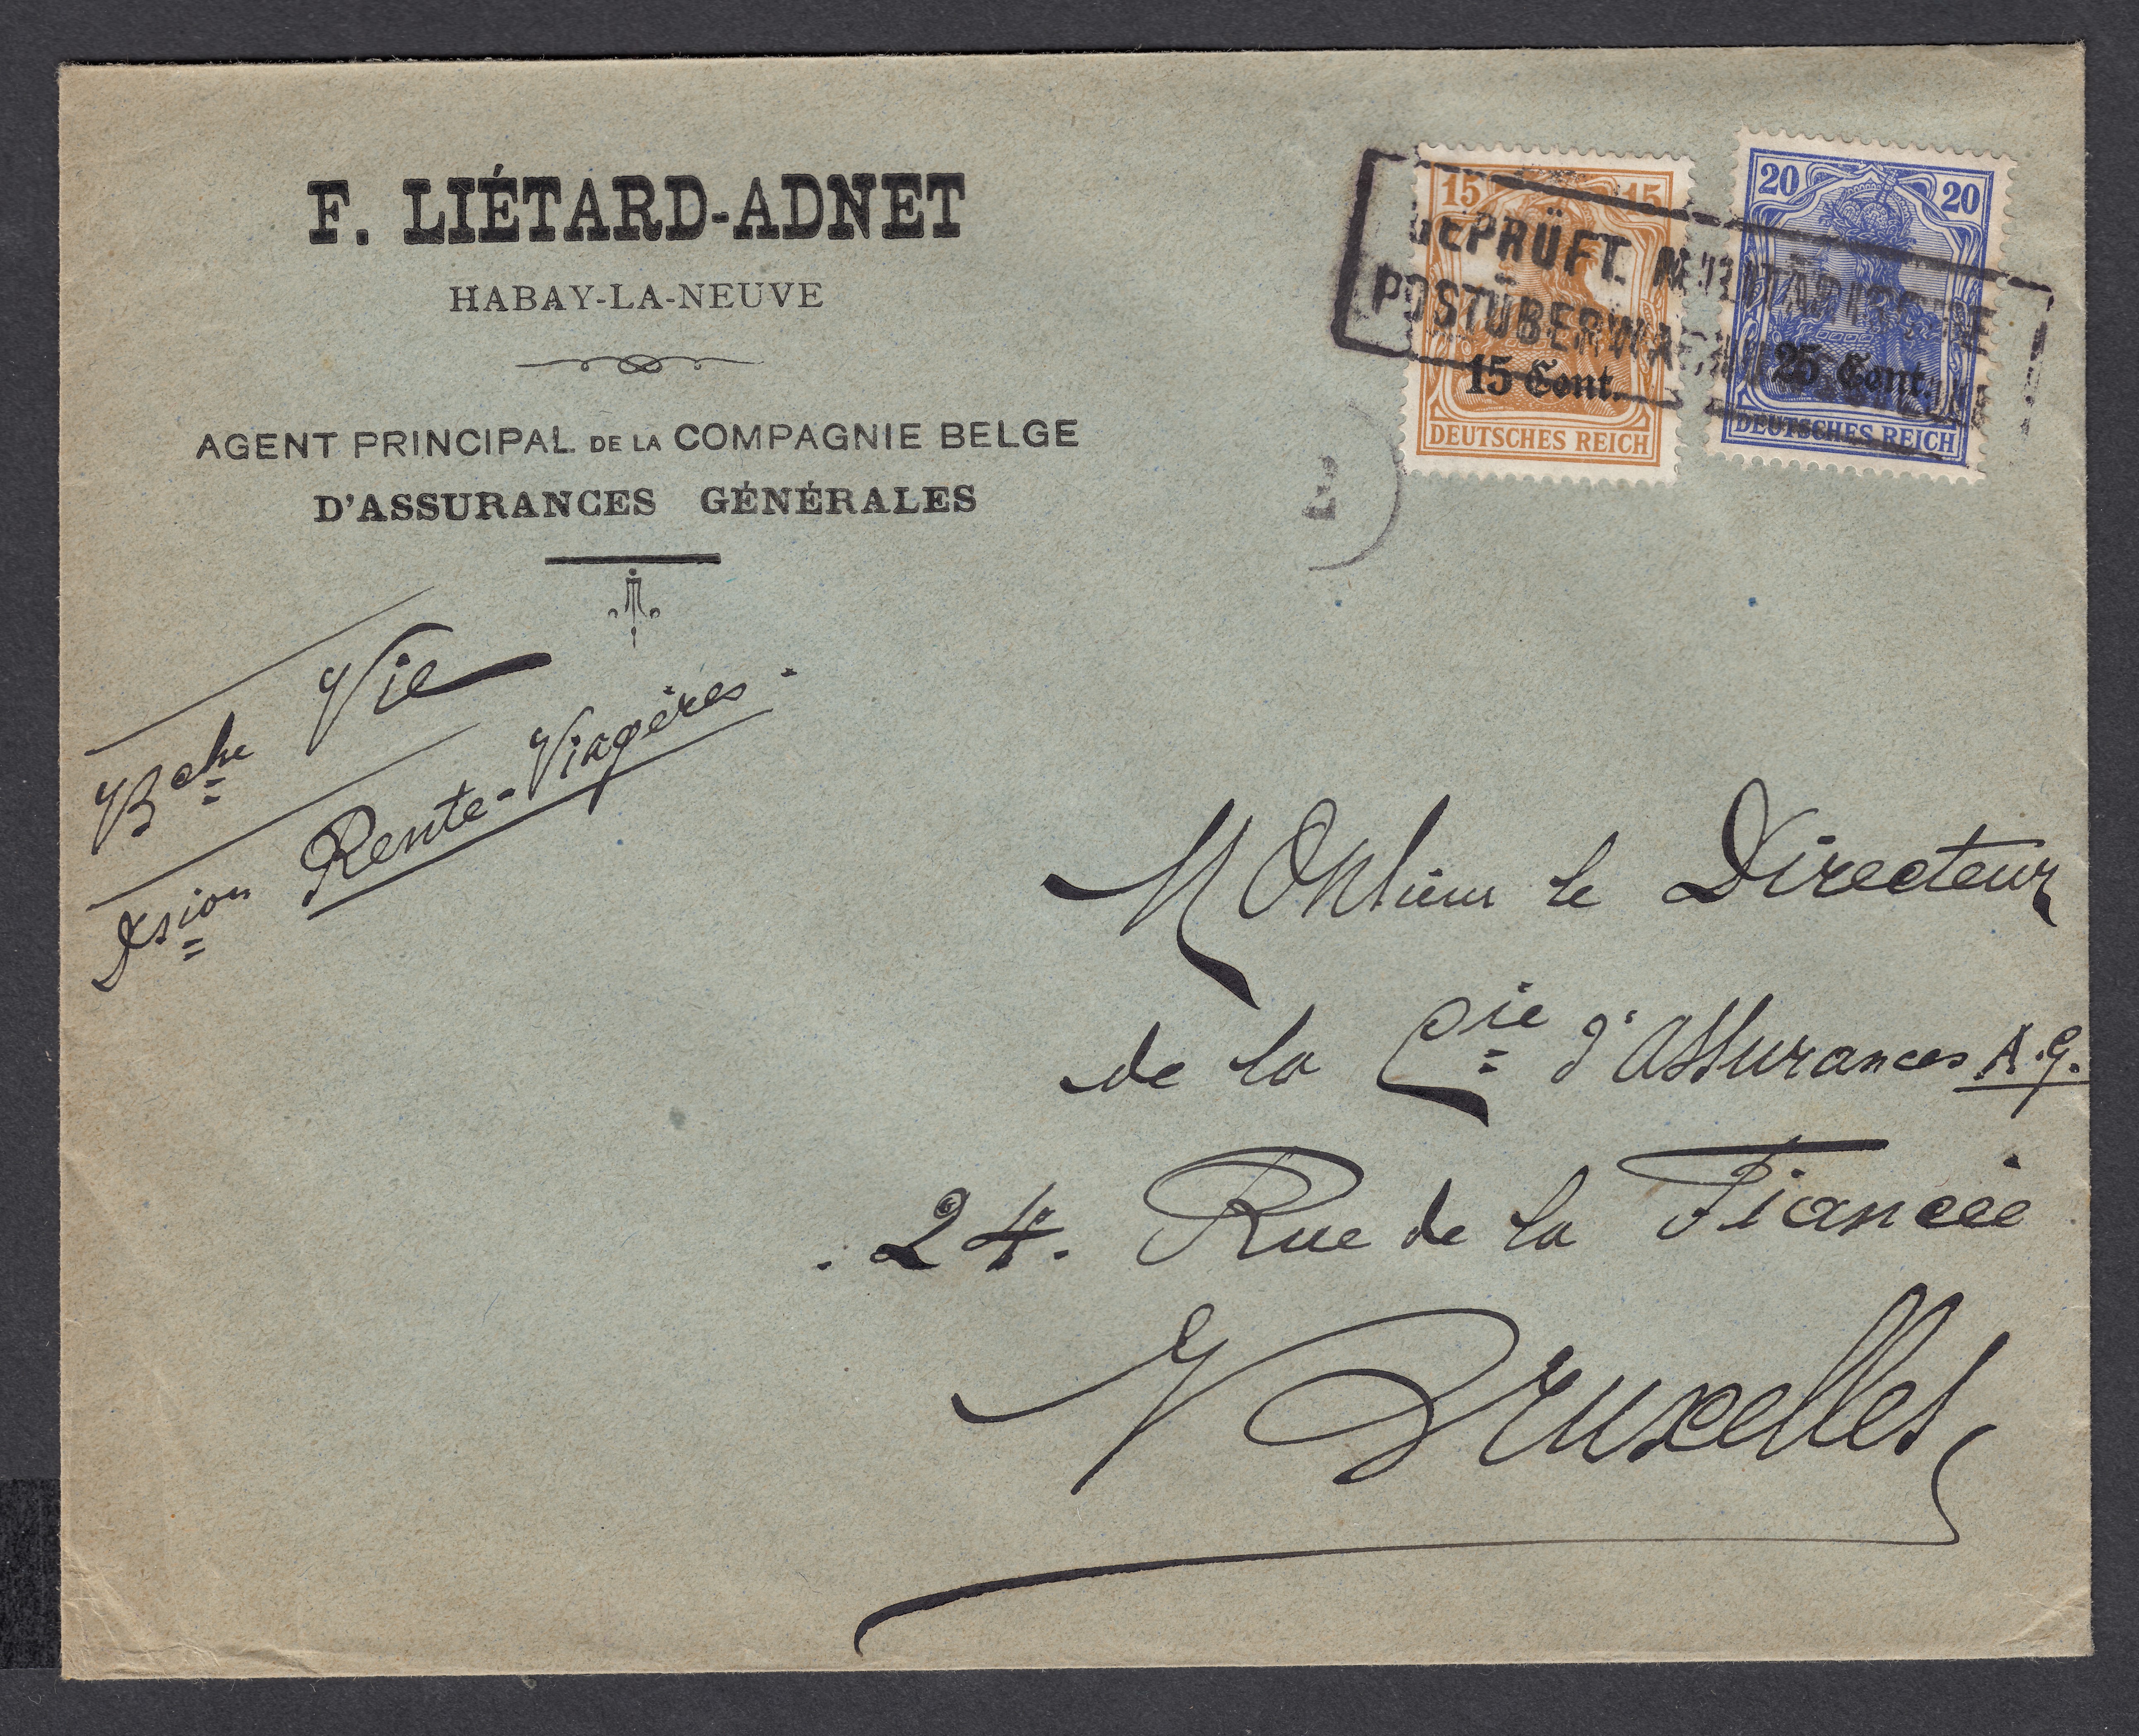 F. LIÉTARD-ADNET
HABAY-LA-NEUVE
AGENT PRINCIPAL DE LA COMPAGNIE BELGE
D'ASSURANCES GÉNÉRALES
Bche Vie
Rente-Viagères.
15 15
15 Cent.
DEUTSCHES REICH
20 20
25 Cent.
DEUTSCHES REICH
GEPRÜFT. MILITÄRISCHE
POSTÜBERWACHUNGSSTELLE
2
Monsieur le Directeur
de la Cie d'assurances A.G.
24. Rue de la Fiancée
Bruxelles